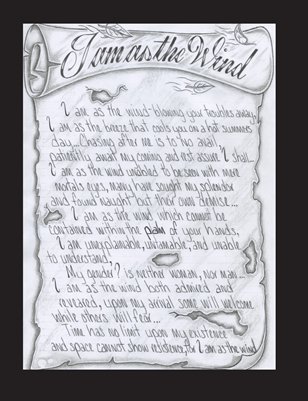 I am as the Wind
I am as the wind blowing you troubles away,
I am as the breeze that cools you on a hot summers
day... Chasing after me is to no avail
patiently await my coming and rest assure I shall...
I am as the wind unabled to be seen with mere
mortals eyes, many have sought my splendor
and found naught but their own demise...
I am as the wind which cannot be
contained within the palm of your hands,
I am unexplainable, untamable, and unable
to understand,
My gender? is neither woman, nor man
I am as the wind both admired and
revered, upon my arrival some will welcome
while others will fear...
Time has no limit upon my existence
and space cannot show relictence, for I am as the wind